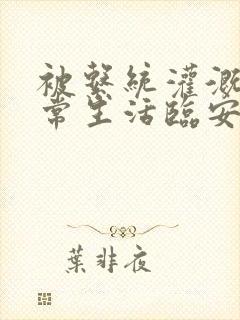 被繫統灌溉
常生活臨安
葉非夜